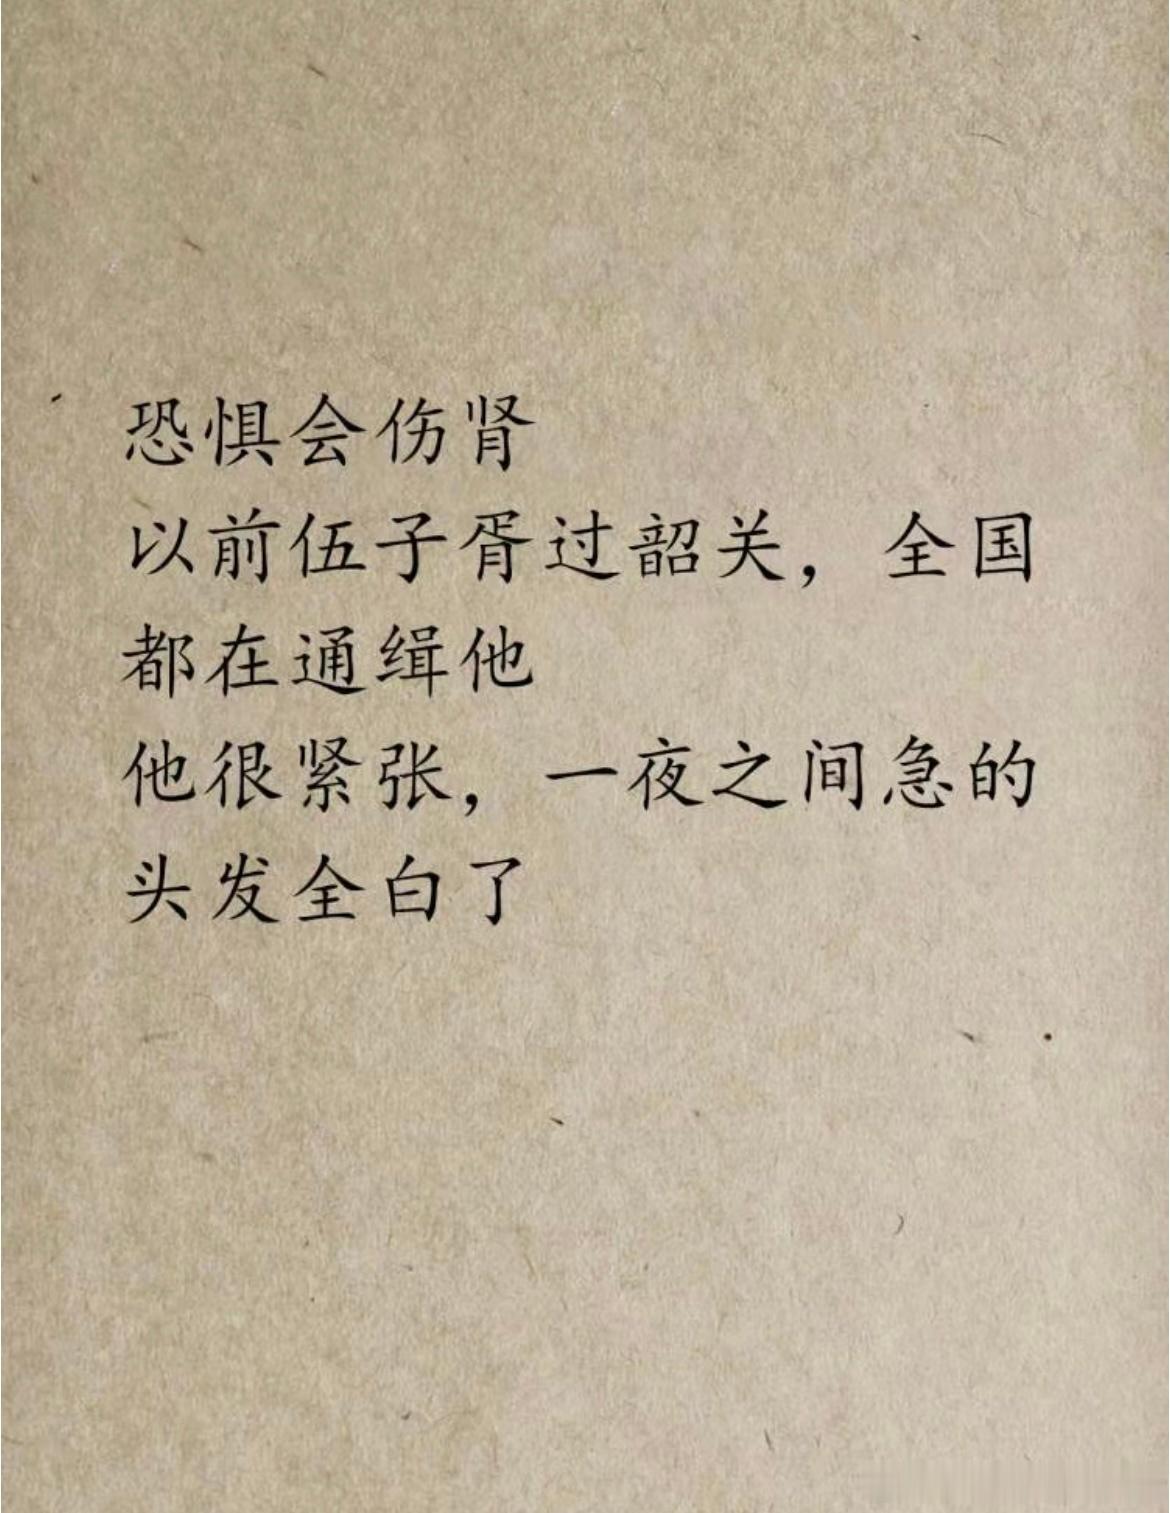 恐惧会伤肾
以前伍子胥过韶关，全国
都在通缉他
他很紧张，一夜之间急的
头发全白了